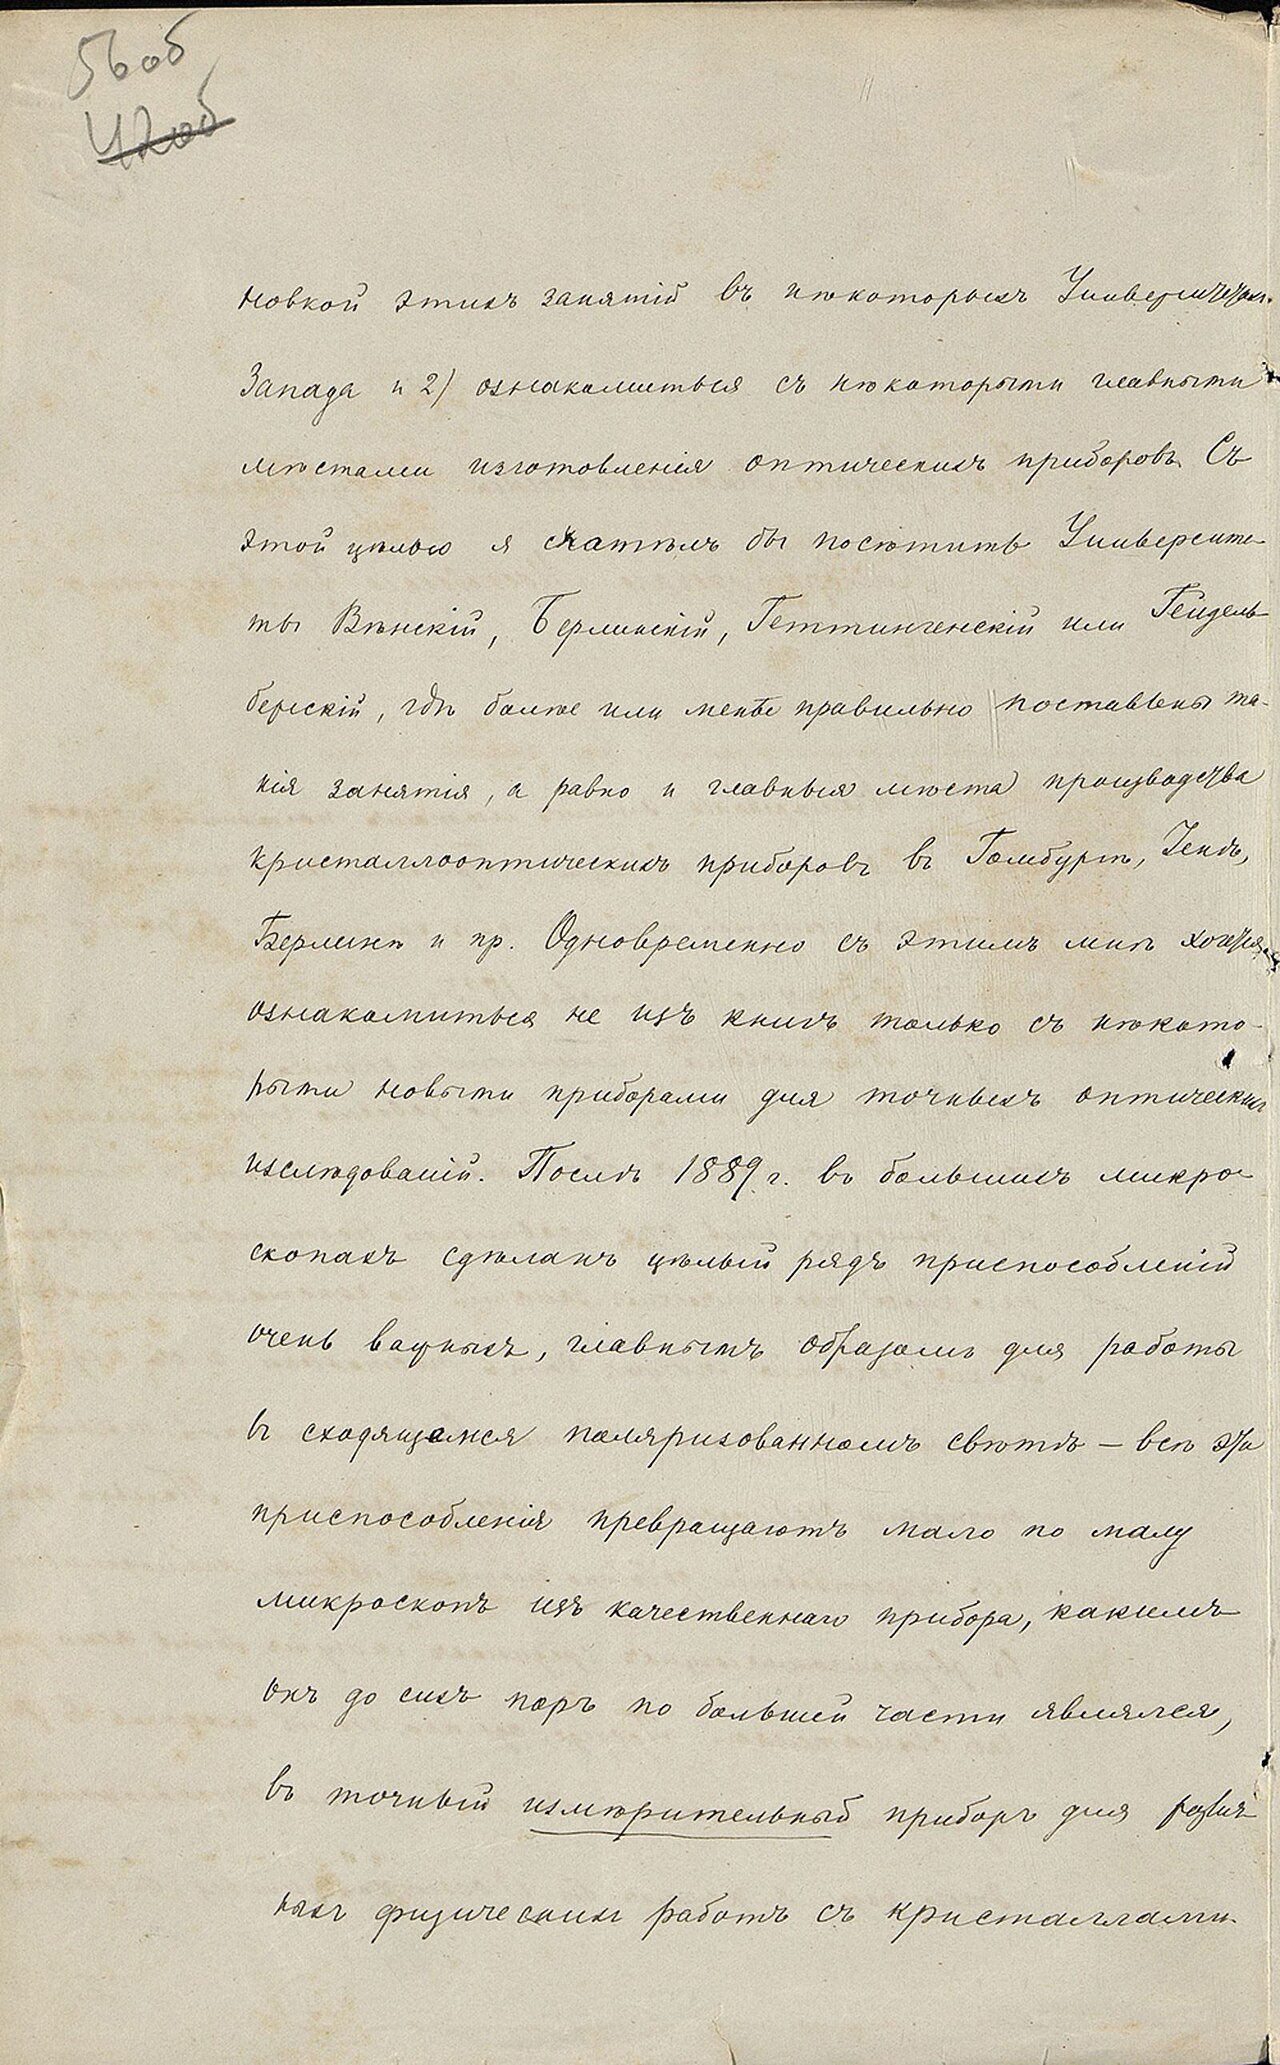 56об
42об
новкой этихъ занятій въ нѣкоторыхъ Университетахъ
Запада и 2) ознакомиться съ нѣкоторыми главными
мѣстами изготовленія оптическихъ приборовъ. Съ
этой цѣлью я хотѣлъ бы посѣтить Университе-
ты Вѣнскій, Берлинскій, Геттингенскій или Гейдель-
бергскій, гдѣ болѣе или менѣе правильно поставлены та-
кія занятія, а равно и главныя мѣста производства
кристаллооптическихъ приборовъ въ Гомбургѣ, Іенѣ,
Берлинѣ и пр. Одновременно съ этимъ мнѣ хочется
ознакомиться не изъ книгъ только съ нѣкото-
рыми новыми приборами для точныхъ оптическихъ
изслѣдованій. Послѣ 1889 г. въ большихъ микро-
скопахъ сдѣланъ цѣлый рядъ приспособленій
очень важныхъ, главнымъ образомъ для работы
въ сходящемся поляризованномъ свѣтѣ – всѣ эти
приспособленія превращаютъ мало по малу
микроскопъ изъ качественнаго прибора, какимъ
онъ до сихъ поръ по большей части являлся,
въ точный измѣрительный приборъ для различ
ныхъ физическихъ работъ съ кристаллами.